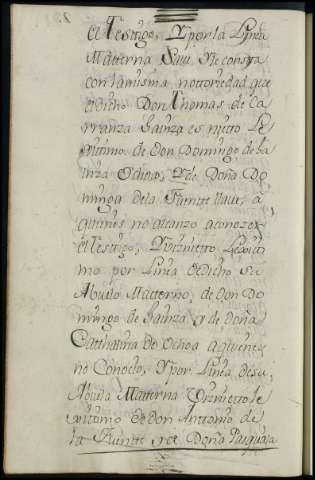 el Testigo, Y por la Linea
Matterna Save, y le consta
con la misma nottoriedad que
el dicho Don Thomas de Ca
rranza Sainza es nietto Le
gitimo de Don Domingo de Sa
inza Ochova, Y de Doña Do
minga de la Fuentte Naue, a
quienes no alcanzo a conozer
el Testigo, Y Viznietto Lexitti
mo por Linea de dicho su
Abuelo Matterno, de Don Do
mingo de Sainza y de Doña
Catthalina de Ochoa a quienes
no Conocio, Y por Linea de su
Abuela Matterna Viznietto le
xitimo de Don Anttonio de
la Fuentte y de Doña Pasquala